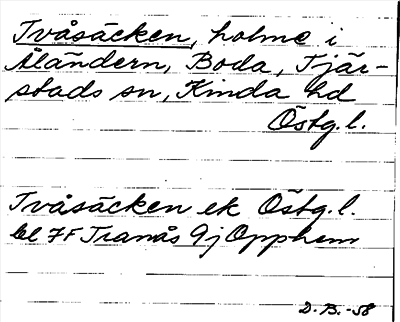 Tvåsäcken, holme i
Åländern, Boda, Tjär-
stads sn, Kinda hd
Östg.l.
Tvåsäcken ek Östg.l.
bl 7F Tranås 9j Opphem
D.B.-58